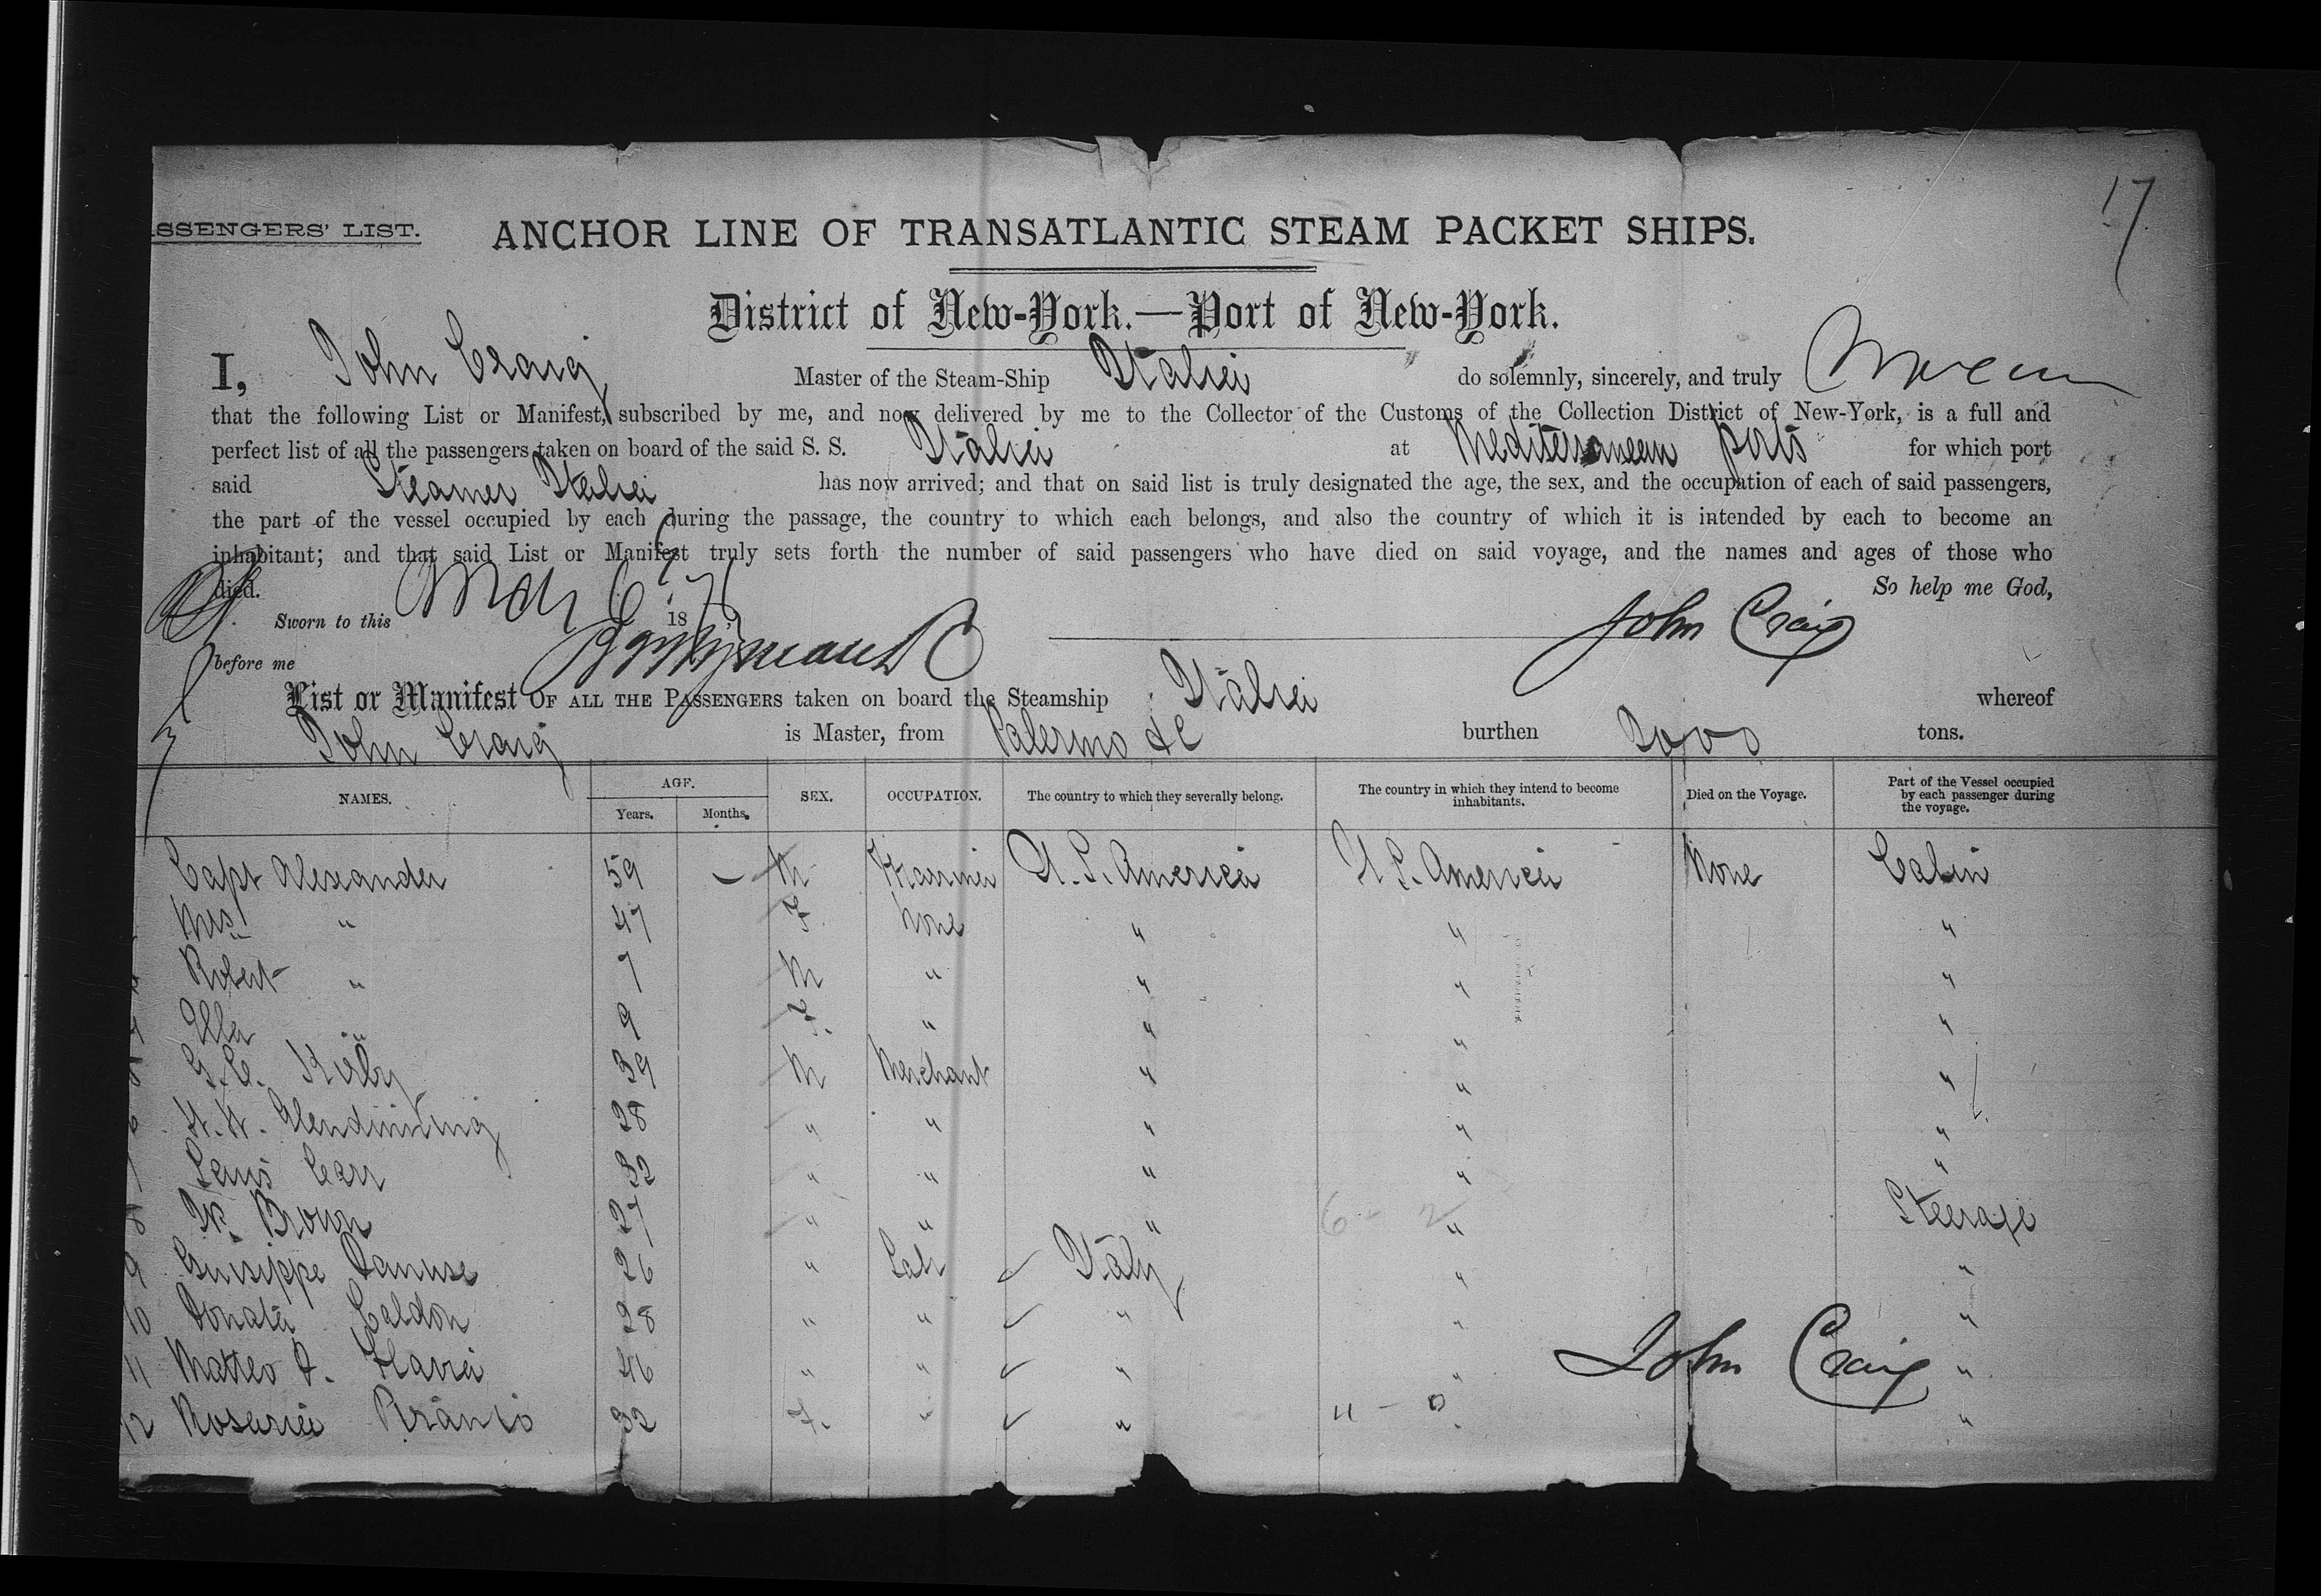 17
SSENGERS' LIST. ANCHOR LINE OF TRANSATLANTIC STEAM PACKET SHIPS.
District of New-York.—Port of New-York.
I, John Craig Master of the Steam-Ship Italia do solemnly, sincerely, and truly swear
that the following List or Manifest, subscribed by me, and now delivered by me to the Collector of the Customs of the Collection District of New-York, is a full and
perfect list of all the passengers taken on board of the said S. S. Italia at Mediterranean ports for which port
said Steamer Italia has now arrived; and that on said list is truly designated the age, the sex, and the occupation of each of said passengers,
the part of the vessel occupied by each during the passage, the country to which each belongs, and also the country of which it is intended by each to become an
inhabitant; and that said List or Manifest truly sets forth the number of said passengers who have died on said voyage, and the names and ages of those who
died. So help me God,
Sworn to this 18 John Craig
before me
List or Manifest OF ALL THE PASSENGERS taken on board the Steamship Italia whereof
John Craig is Master, from Palermo &c burthen tons.
NAMES. AGE. Years. Months. SEX. OCCUPATION. The country to which they severally belong. The country in which they intend to become inhabitants. Died on the Voyage. Part of the Vessel occupied by each passenger during the voyage.
Capt Alexander 59 — M U. S. America U S. America None Cabin
Mrs " 47 F. None " " "
Robert " 7 M " " " "
Ella " 9 F. " " " "
G. C. Kirby 39 M Merchant " " "
6 H. H. Glendinning 28 " " " " "
7 Lewis Carr 32 " " " " "
8 Brown 27 " " " " Steerage
9 Guiseppe 26 " Labr Italy " "
10 Donata Caldon 28 " " " " "
11 Matteo 46 " " " " "
12 Rosaria 32 F. " " " "
John Craig